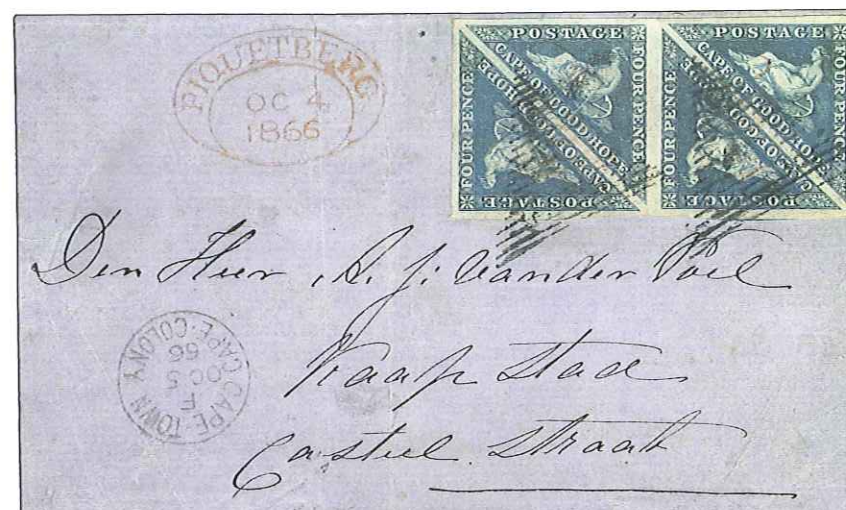 PIQUETBERG
OC 4
1866
POSTAGE
FOUR PENCE
CAPE OF GOOD HOPE
CAPE OF GOOD HOPE
FOUR PENCE
POSTAGE
POSTAGE
FOUR PENCE
CAPE OF GOOD HOPE
CAPE OF GOOD HOPE
FOUR PENCE
POSTAGE
Den Heer A. J. van der Poel
Kaap Stad
Casteel Straat
CAPE·TOWN
F
OC 5
66
CAPE·COLONY